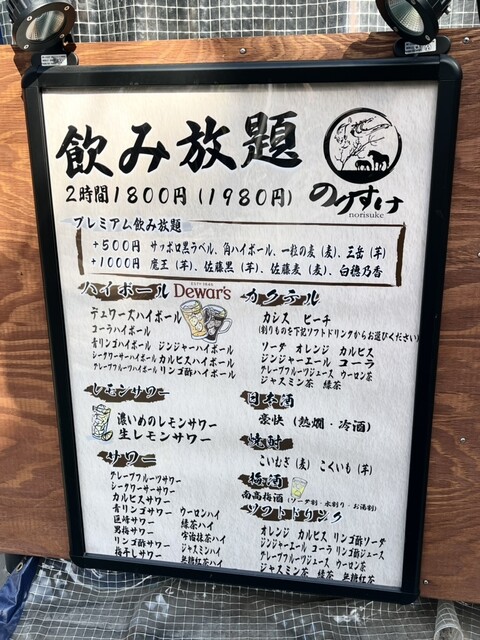 飲み放題
2時間1800円(1980円)
のりすけ
norisuke
プレミアム飲み放題
+500円 サッポロ黒ラベル、角ハイボール、一粒の麦(麦)、三岳(芋)
+1000円 魔王(芋)、佐藤黒(芋)、佐藤麦(麦)、白穂乃香
ハイボール Dewar's
デュワーズハイボール
コーラハイボール
青リンゴハイボール ジンジャーハイボール
シークワーサーハイボール カルピスハイボール
グレープフルーツハイボール リンゴ酢ハイボール
レモンサワー
濃いめのレモンサワー
生レモンサワー
サワー
グレープフルーツサワー
シークワーサーサワー
カルピスサワー
青リンゴサワー ウーロンハイ
巨峰サワー 緑茶ハイ
男梅サワー 宇治抹茶ハイ
リンゴ酢サワー ジャスミンハイ
梅干しサワー 無糖紅茶ハイ
カクテル
カシス ピーチ
(割りものを下記ソフトドリンクからお選びください)
ソーダ オレンジ カルピス
ジンジャーエール コーラ
グレープフルーツジュース ウーロン茶
ジャスミン茶 緑茶
日本酒
豪快(熱燗・冷酒)
焼酎
こいむぎ(麦) こくいも(芋)
梅酒
南高梅酒(ソーダ割・水割り・お湯割)
ソフトドリンク
オレンジ カルピス リンゴ酢ソーダ
ジンジャーエール コーラ リンゴ酢ジュース
グレープフルーツジュース ウーロン茶
ジャスミン茶 緑茶 無糖紅茶